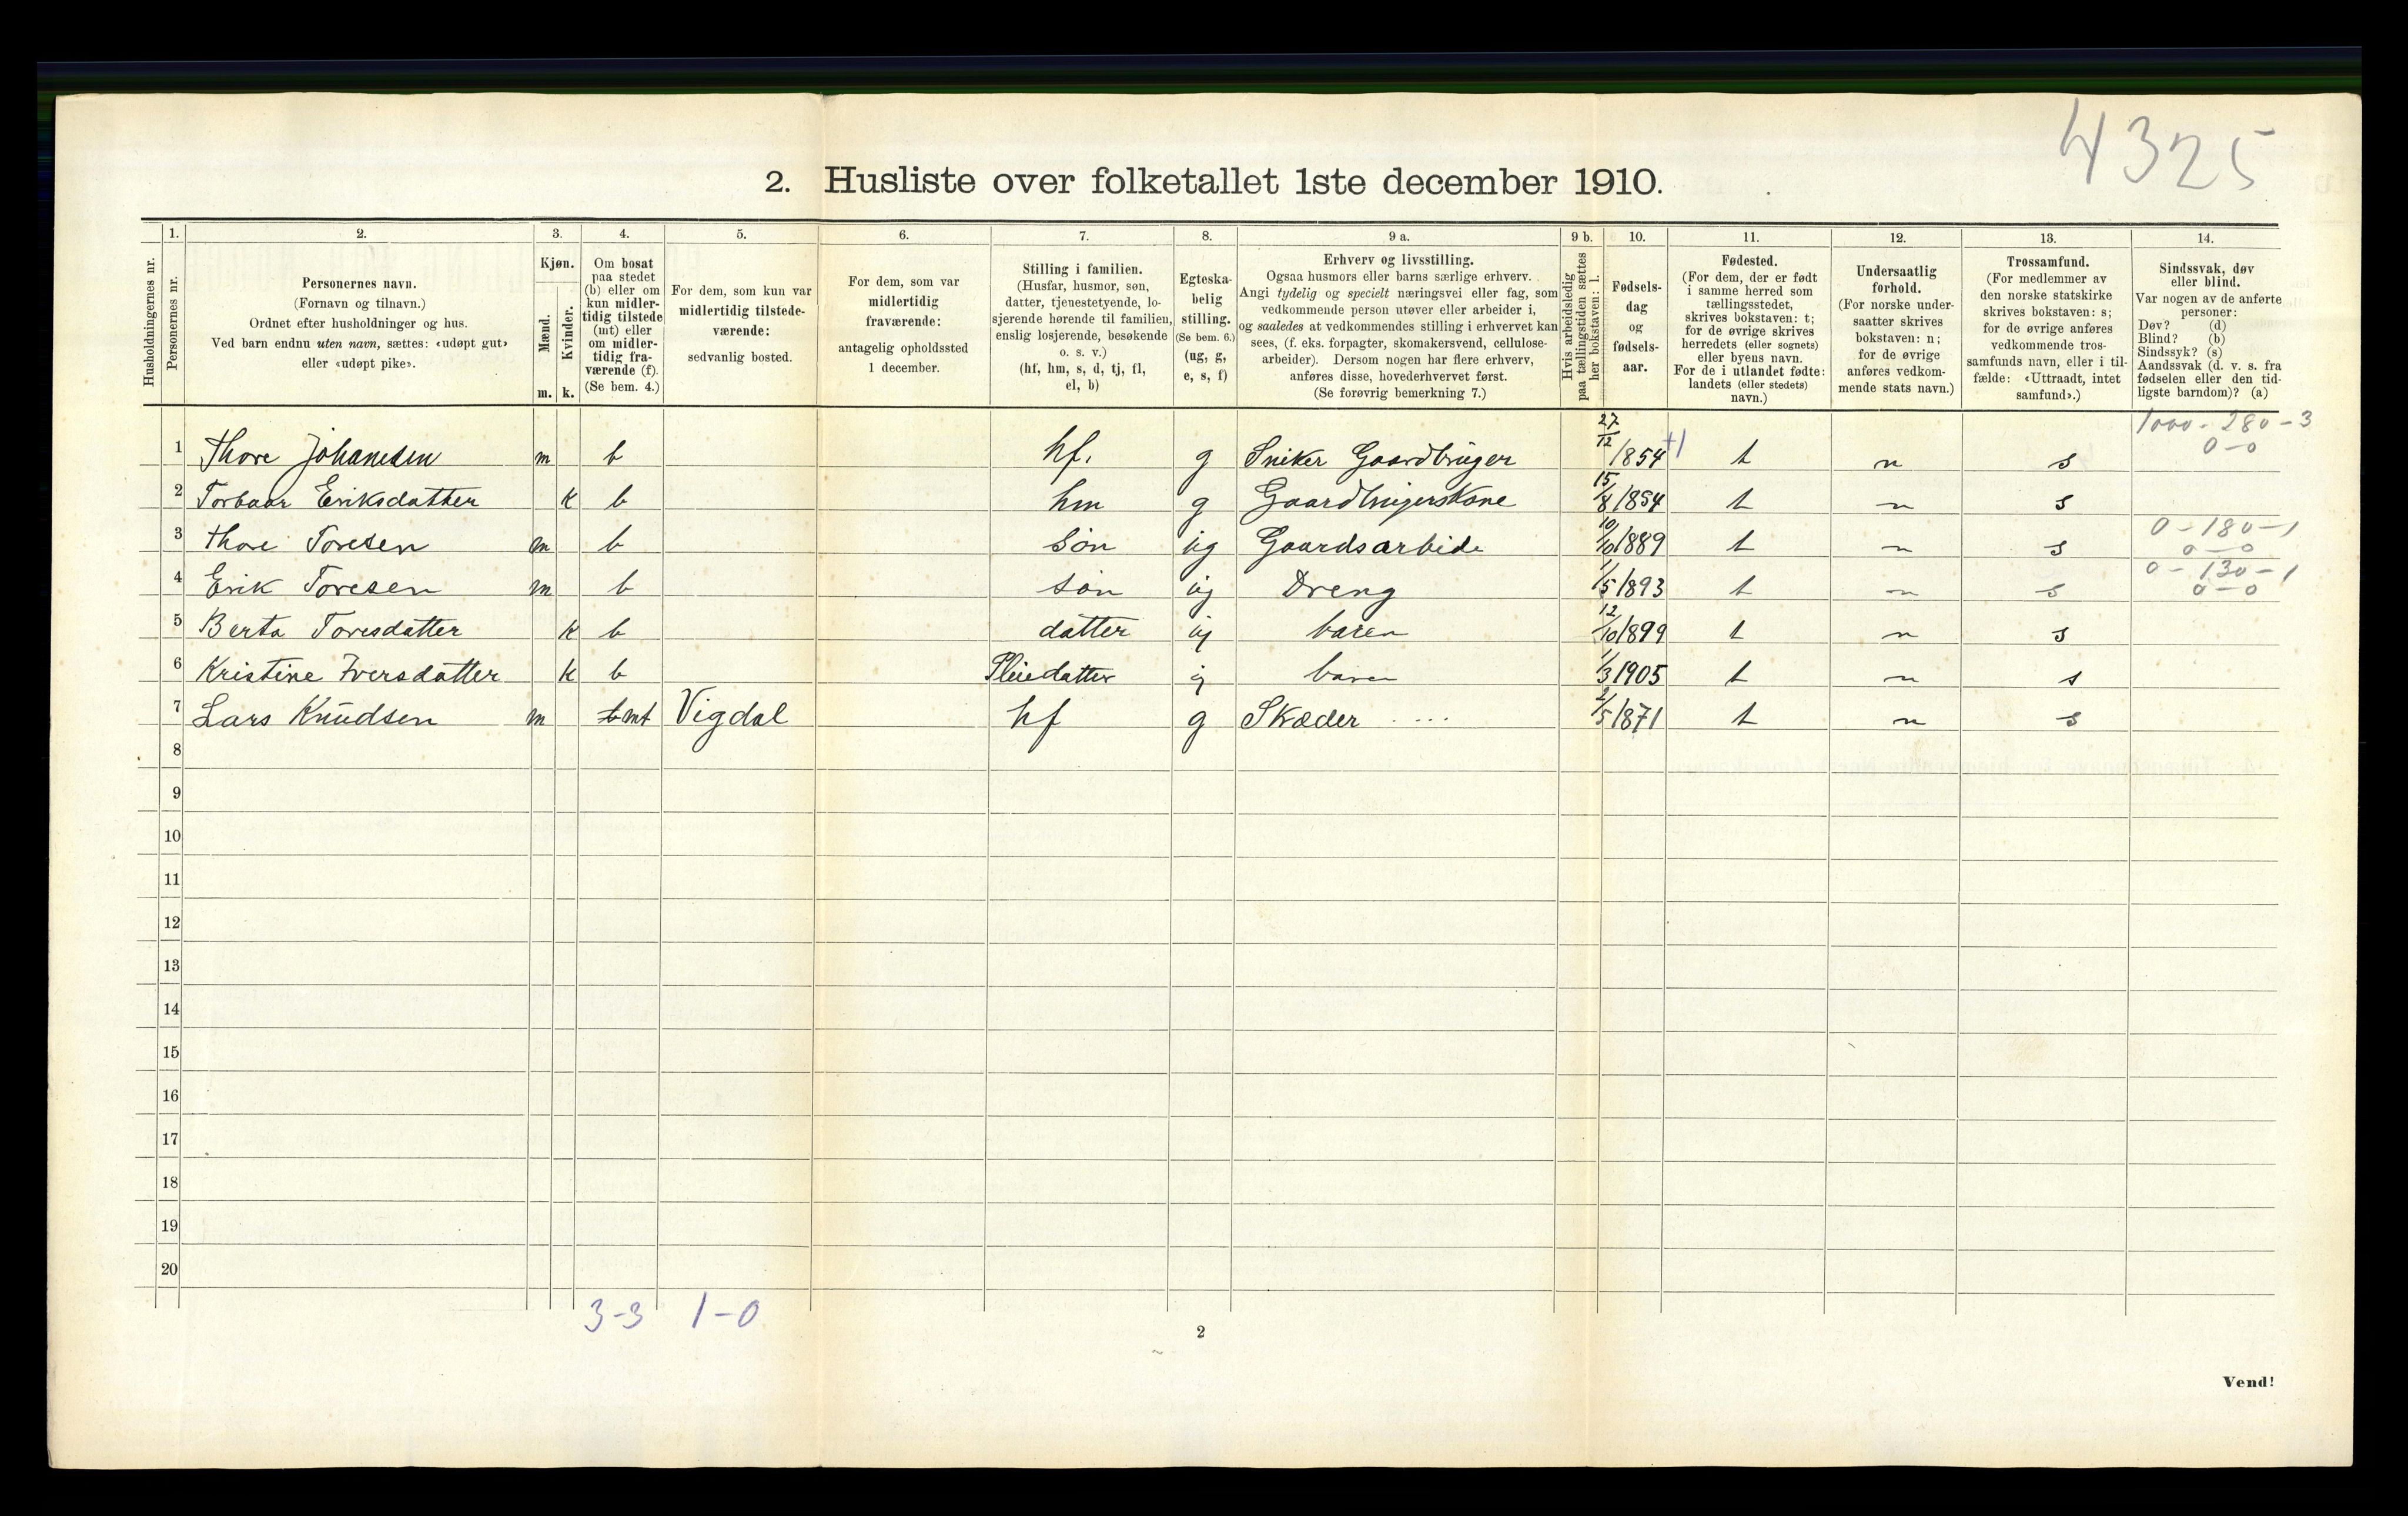 4325
2. Husliste over folketallet 1ste december 1910.
Husholdningernes nr.
1.
Personernes nr.
2.
Personernes navn.
(Fornavn og tilnavn.)
Ordnet efter husholdninger og hus.
Ved barn endnu uten navn, sættes: «udøpt gut»
eller «udøpt pike».
3.
Kjøn.
Mænd.
Kvinder.
m.
k.
4.
Om bosat
paa stedet
(b) eller om
kun midler-
tidig tilstede
(mt) eller
om midler-
tidig fra-
værende (f).
(Se bem. 4.)
5.
For dem, som kun var
midlertidig tilstede-
værende:
sedvanlig bosted.
6.
For dem, som var
midlertidig
fraværende:
antagelig opholdssted
1 december.
7.
Stilling i familien.
(Husfar, husmor, søn,
datter, tjenestetyende, lo-
sjerende hørende til familien,
enslig losjerende, besøkende
o. s. v.)
(hf, hm, s, d, tj, fl,
el, b)
8.
Egteska-
belig
stilling.
(Se bem. 6.)
(ug, g,
e, s, f)
9 a.
Erhverv og livsstilling.
Ogsaa husmors eller barns særlige erhverv.
Angi tydelig og specielt næringsvei eller fag, som
vedkommende person utøver eller arbeider i,
og saaledes at vedkommendes stilling i erhvervet kan
sees, (f. eks. forpagter, skomakersvend, cellulose-
arbeider). Dersom nogen har flere erhverv,
anføres disse, hovederhvervet først.
(Se forøvrig bemerkning 7.)
9 b.
Hvis arbeidsledig
paa tællingstiden sættes
her bokstaven: l.
10.
Fødsels-
dag
og
fødsels-
aar.
11.
Fødested.
(For dem, der er født
i samme herred som
tællingsstedet,
skrives bokstaven: t;
for de øvrige skrives
herredets (eller sognets)
eller byens navn.
For de i utlandet fødte:
landets (eller stedets)
navn.)
12.
Undersaatlig
forhold.
(For norske under-
saatter skrives
bokstaven: n;
for de øvrige
anføres vedkom-
mende stats navn.)
13.
Trossamfund.
(For medlemmer av
den norske statskirke
skrives bokstaven: s;
for de øvrige anføres
vedkommende tros-
samfunds navn, eller i til-
fælde: «Uttraadt, intet
samfund».)
14.
Sindssvak, døv
eller blind.
Var nogen av de anførte
personer:
Døv? (d)
Blind? (b)
Sindssyk? (s)
Aandssvak (d. v. s. fra
fødselen eller den tid-
ligste barndom)? (a)
1 Thore Johanesen m b hf. g Sniker Gaardbruger 27/12 /1854 +1 t n s 1000 - 280 - 3
0-0
2 Torbaar Eriksdatter k b hm g Gaardbrugerskone 15/8 /1854 t n s
3 Thore Toresen m b søn ug Gaardsarbide 10/10 1889 t n s 0 - 180 - 1
0-0
4 Erik Toresen m b søn ug Dreng 1/5 1893 t n s 0 - 130 - 1
0-0
5 Berta Toresdatter k b datter ug baren 12/10 1899 t n s
6 Kristine Iversdatter k b Pleiedatter g baren 1/3 1905 t n s
7 Lars Knudsen m b mt Vigdal hf g Skæder 2/5 1871 t n s
8
9
10
11
12
13
14
15
16
17
18
19
20
3-3 1-0
2
Vend!